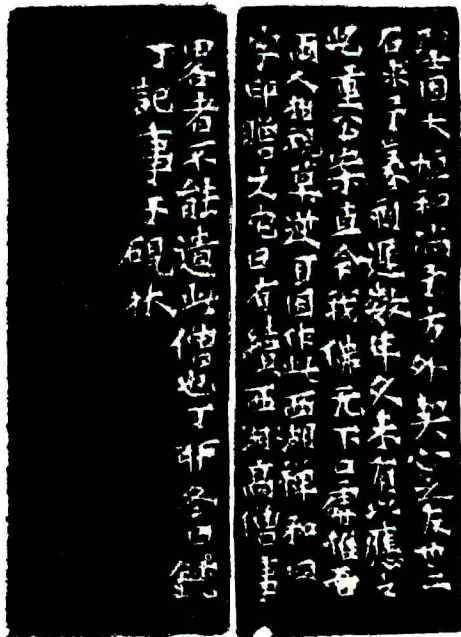 大恒和尚予方外契心之友也
石求予篆刻遲數年久未有以應之
此重公案直令我佛无下口處惟吾
兩人相視莫逆耳因作此西湖禪和四
字印贈之它日有續西湖高僧事
畧者不能遺此僧也丁卯冬日鈍
丁記事于硯林